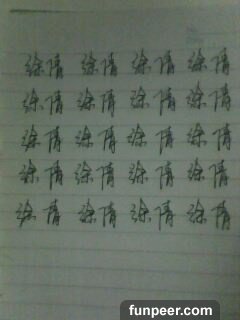 徐倩 徐倩 徐倩 徐倩
徐倩 徐倩 徐倩 徐倩
徐倩 徐倩 徐倩 徐倩
徐倩 徐倩 徐倩 徐倩
徐倩 徐倩 徐倩 徐倩
funpeer.com